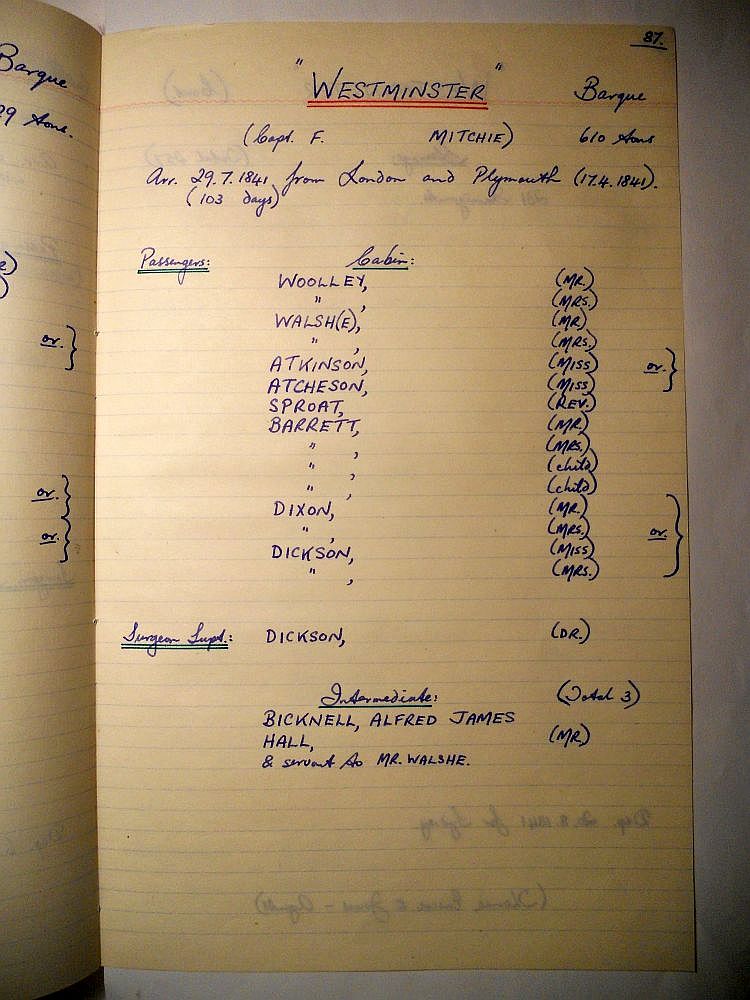 Barque
87.
"WESTMINSTER" Barque
9 tons.
(Capt. F. MITCHIE) 610 tons
Arr. 29.7.1841 from London and Plymouth (17.4.1841).
(103 days)
Passengers: Cabin:
WOOLLEY, (MR.)
" , (MRS.)
WALSH(E), (MR)
or. } " , (MRS.)
ATKINSON, (MISS) or. }
ATCHESON, (MISS)
SPROAT, (REV.)
BARRETT, (MR)
" , (MRS)
" , (child)
" , (child)
or. } DIXON, (MR.)
" , (MRS.) or. }
or. } DICKSON, (MISS)
" , (MRS.)
Surgeon Supt.: DICKSON, (DR.)
Intermediate: (Total 3)
BICKNELL, ALFRED JAMES
HALL, (MR)
& servant to MR. WALSHE.